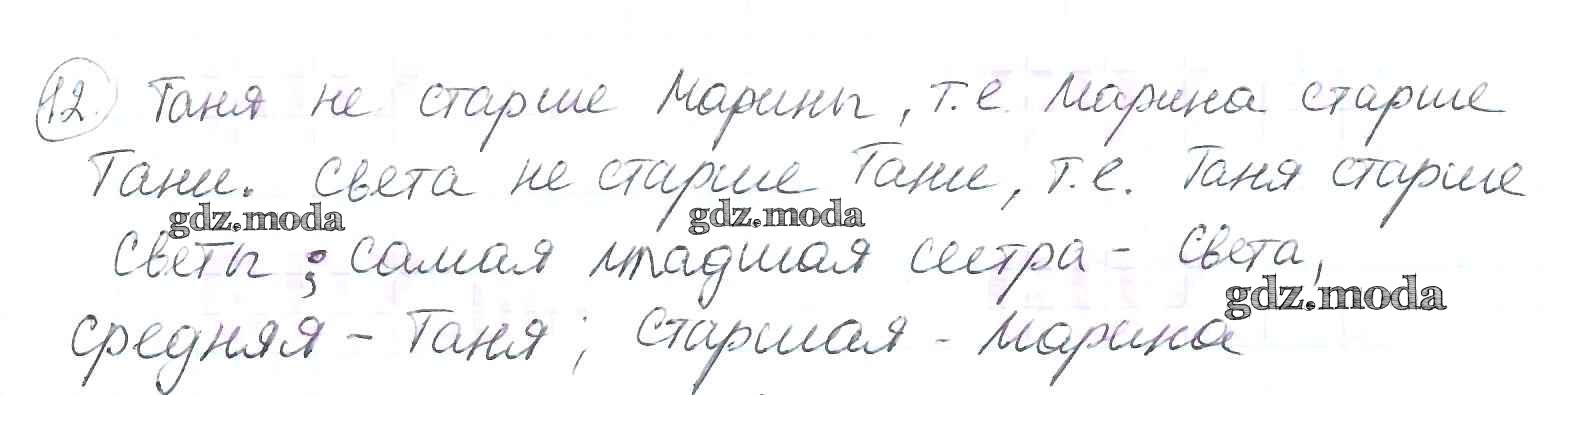 12. Таня не старше Марины, т.е. Марина старше
Тани. Света не старше Тани, т.е. Таня старше
gdz.moda gdz.moda
Светы; самая младшая сестра - Света,
gdz.moda
средняя - Таня; старшая - Марина